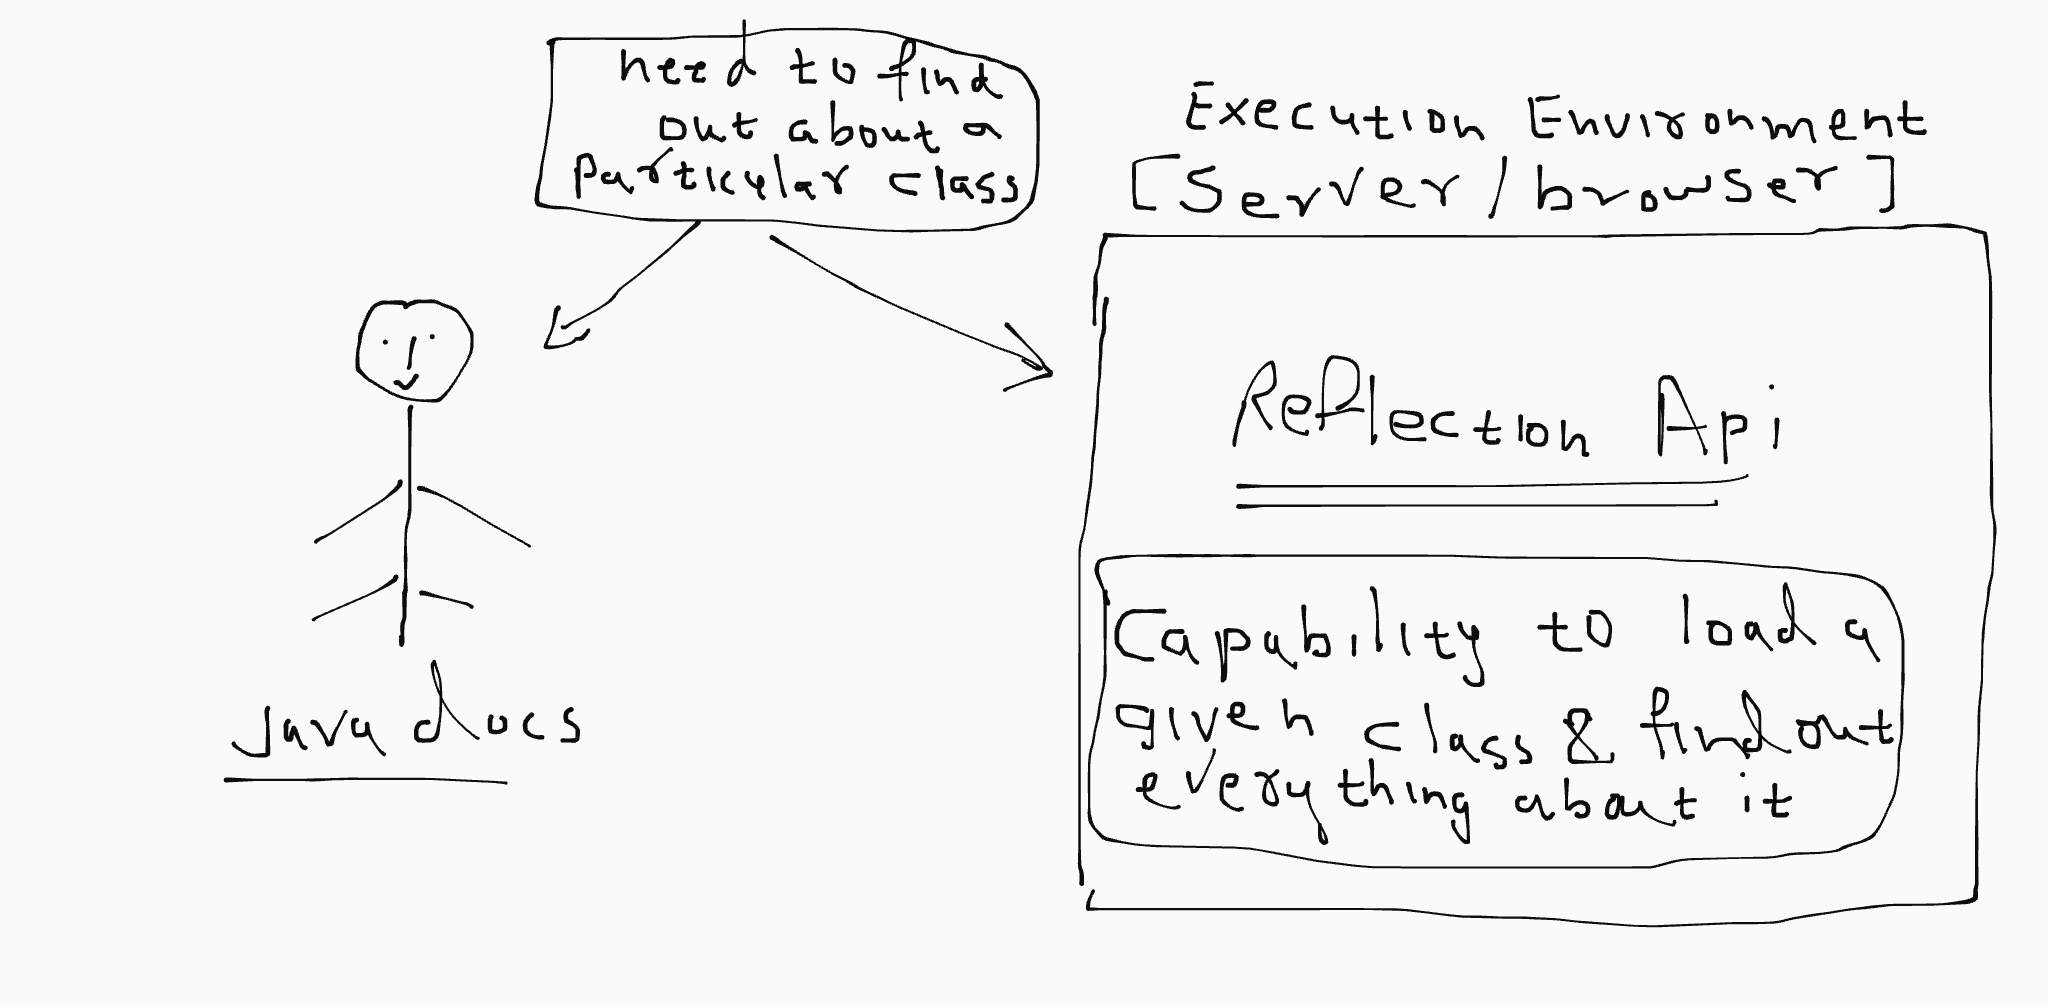 need to find
out about a
particular class
Execution Environment
[Server/browser]
Reflection Api
Capability to load a
given class & find out
everything about it
Java docs